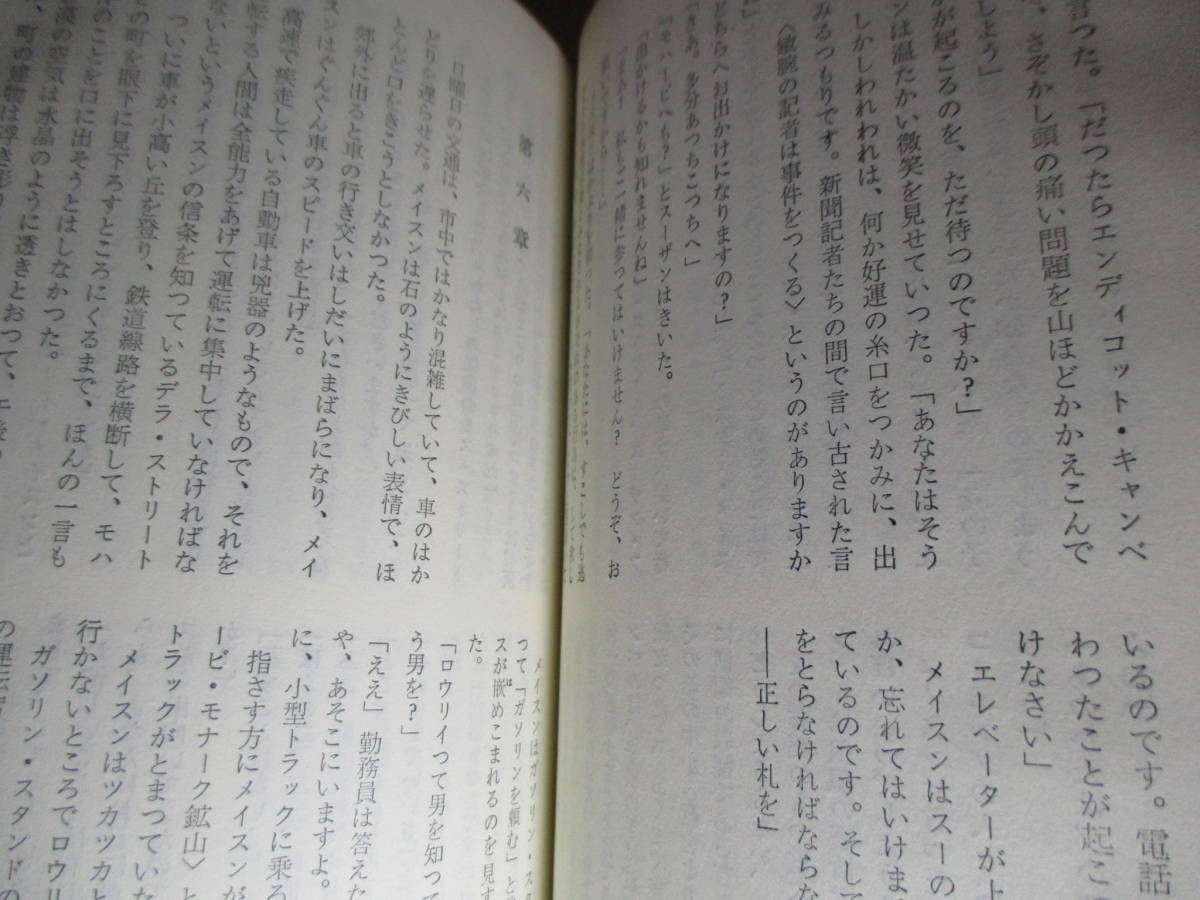 言つた。「だつたらエンディコット・キャンベ
、さぞかし頭の痛い問題を山ほどかかえこんで
しよう」
が起こるのを、ただ待つのですか？」
ンは温たかい微笑を見せていつた。「あなたはそう
しかしわれわれは、何か好運の糸口をつかみに、出
みるつもりです。新聞記者たちの間で言い古された言
〈敏腕の記者は事件をつくる〉というのがありますか
に」
どちらへお出かけになりますの？」
「さあ。多分あつちこつちへ」
「モハービへも？」とスーザンはきいた。
「出かけるかも知れませんね」
「まあ！　私もご一緒に参つてはいけません？　どうぞ、お
願いですから……」
「あなたには、すこしでも
いるのです。電話
わつたことが起こ
けなさい」
エレベーターが上
メイスンはスーの
か、忘れてはいけま
ているのです。そして
をとらなければならな
――正しい札を」
第六章
日曜日の交通は、市中ではかなり混雑していて、車のはか
どりを遅らせた。メイスンは石のようにきびしい表情で、ほ
とんど口をきこうとしなかつた。
郊外に出ると車の行き交いはしだいにまばらになり、メイ
スンはぐんぐん車のスピードを上げた。
高速で疾走している自動車は兇器のようなもので、それを
転する人間は全能力をあげて運転に集中していなければな
ないというメイスンの信条を知つているデラ・ストリート
ついに車が小高い丘を登り、鉄道線路を横断して、モハ
の町を眼下に見下ろすところにくるまで、ほんの一言も
のことを口に出そうとはしなかつた。
漠の空気は水晶のように透きとおつて、
町の建物は浮き彫り
メイスンはガソリン・ス
つて「ガソリンを頼む」と
スが嵌めこまれるのを見す
た。
「ロウリイつて男を知つて
う男を？」
「ええ」勤務員は答えた
や、あそこにいますよ。
に、小型トラックに乗ろ
指さす方にメイスンが
ービ・モナーク鉱山〉と
トラックがとまつていた
メイスンはツカツカと
行かないところでロウリ
ガソリン・スタンドの
の運転